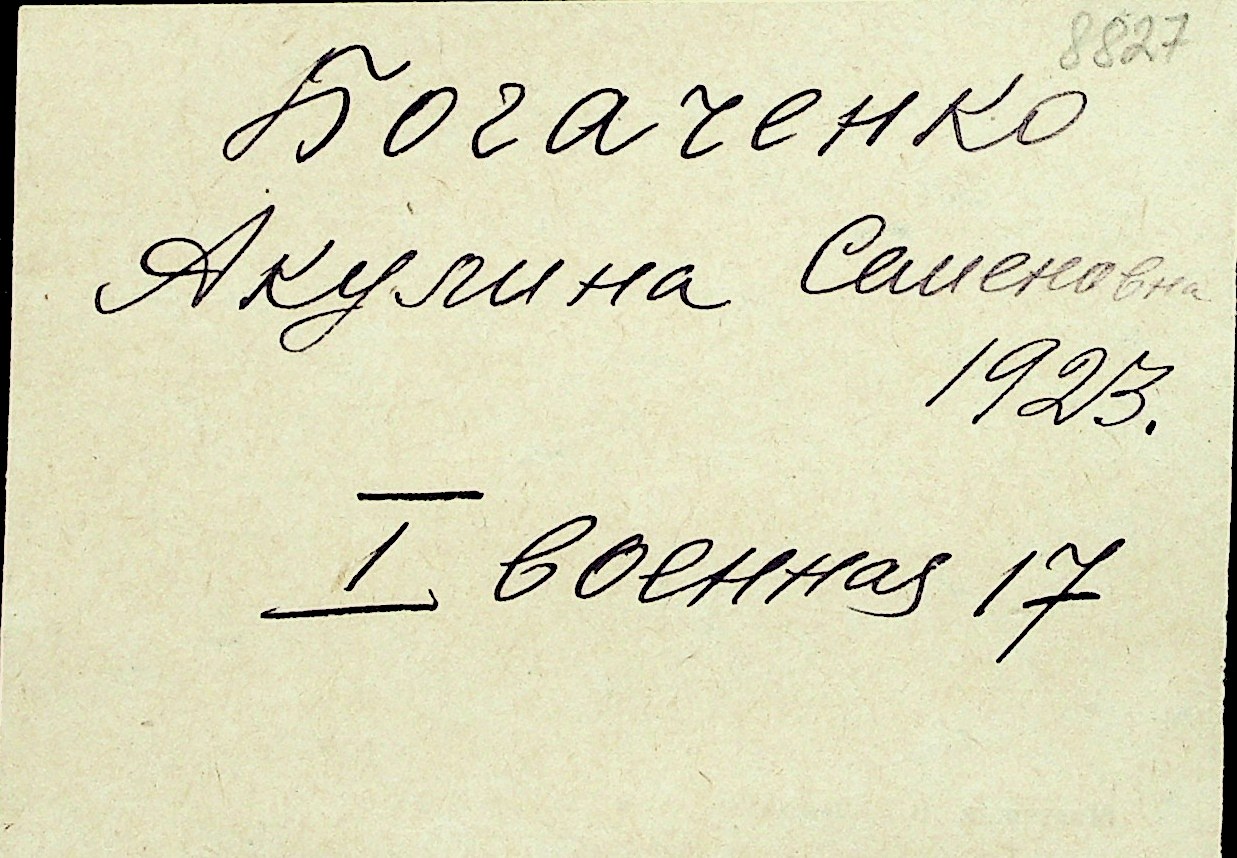 8827
Богаченко
Акулина Семеновна
1923.
I военная 17